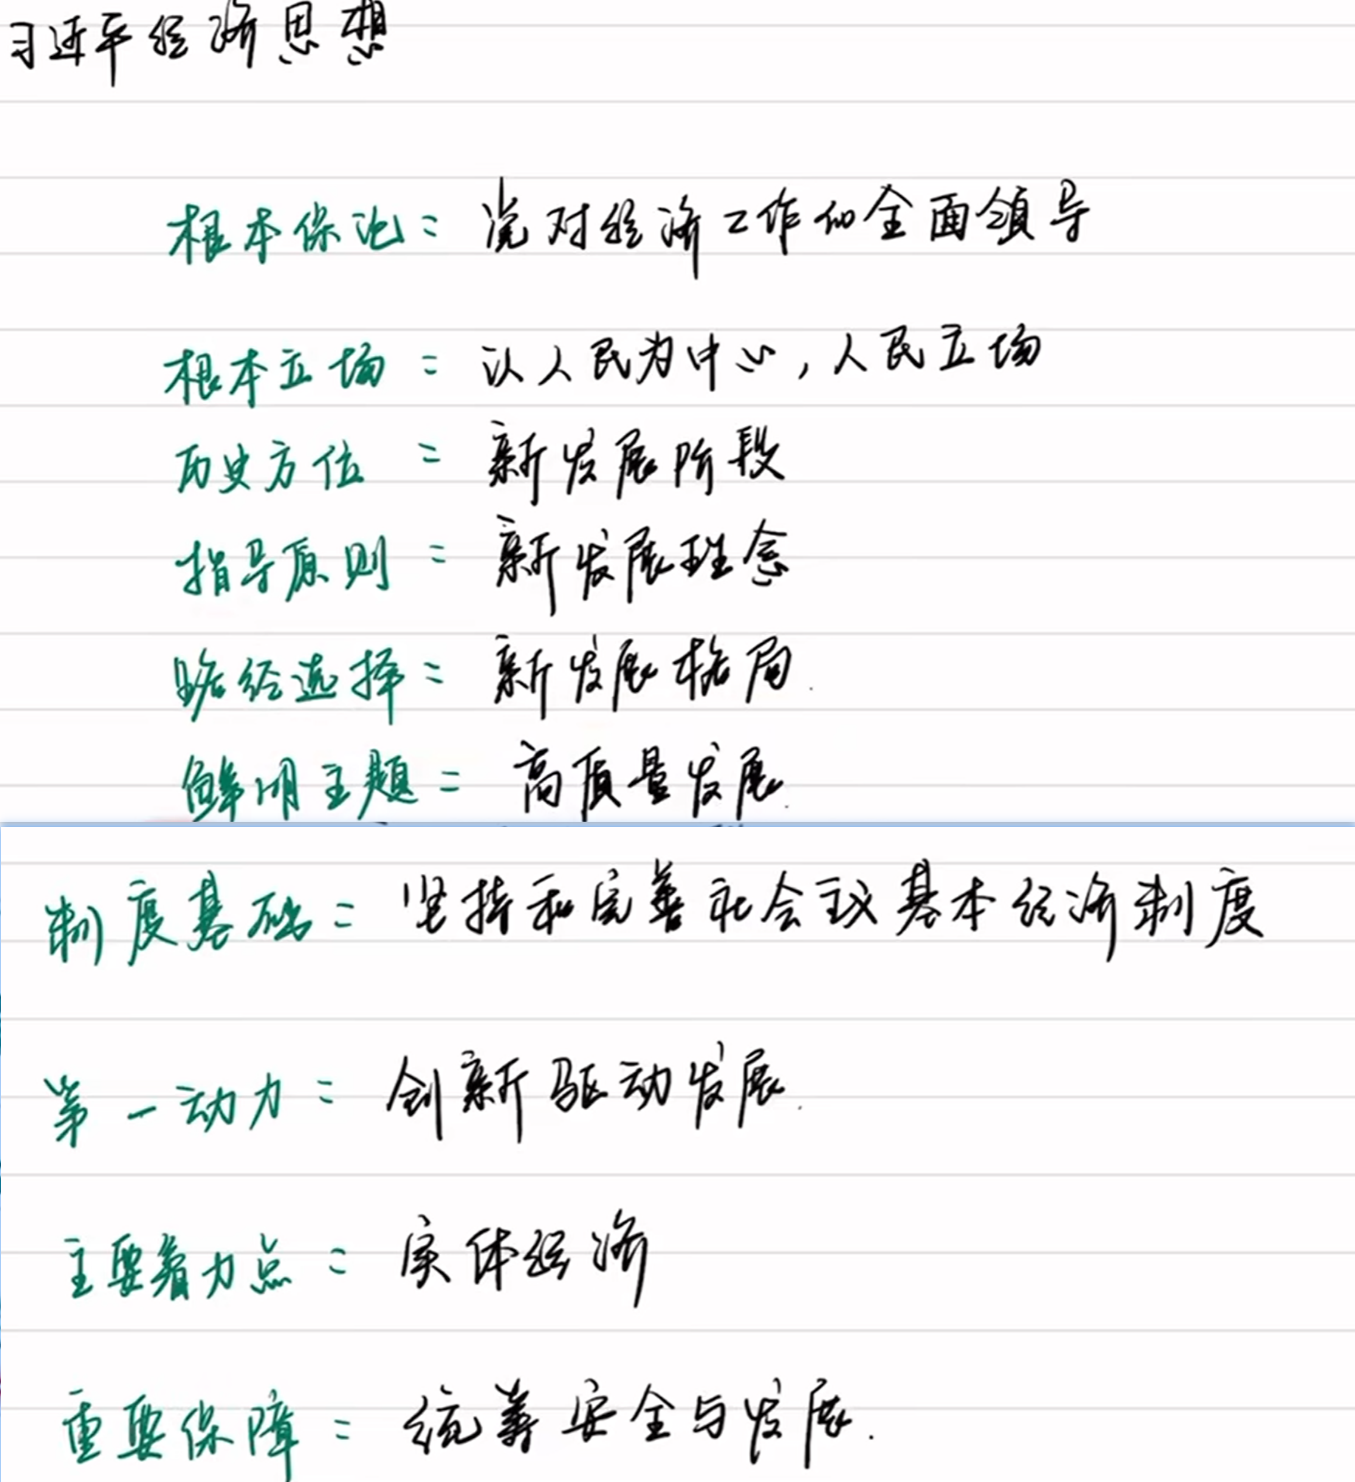 习近平经济思想
根本保证：党对经济工作的全面领导
根本立场：以人民为中心，人民立场
历史方位：新发展阶段
指导原则：新发展理念
路径选择：新发展格局.
鲜明主题：高质量发展.
制度基础：坚持和完善社会主义基本经济制度
第一动力：创新驱动发展.
主要着力点：实体经济
重要保障：统筹安全与发展.